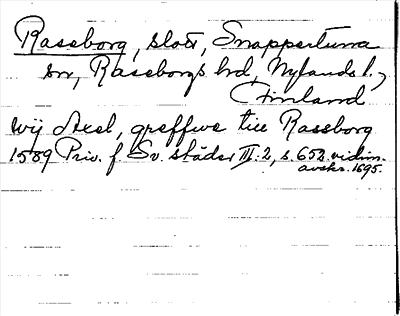 Raseborg, slott, Snappertuna
sn, Raseborgs hd, Nylands l.,
Finland
Wij Axel, greffwe till Rassborg
1589 Priv. f. Sv. städer III:2, s. 652. vidim.
avskr. 1695.